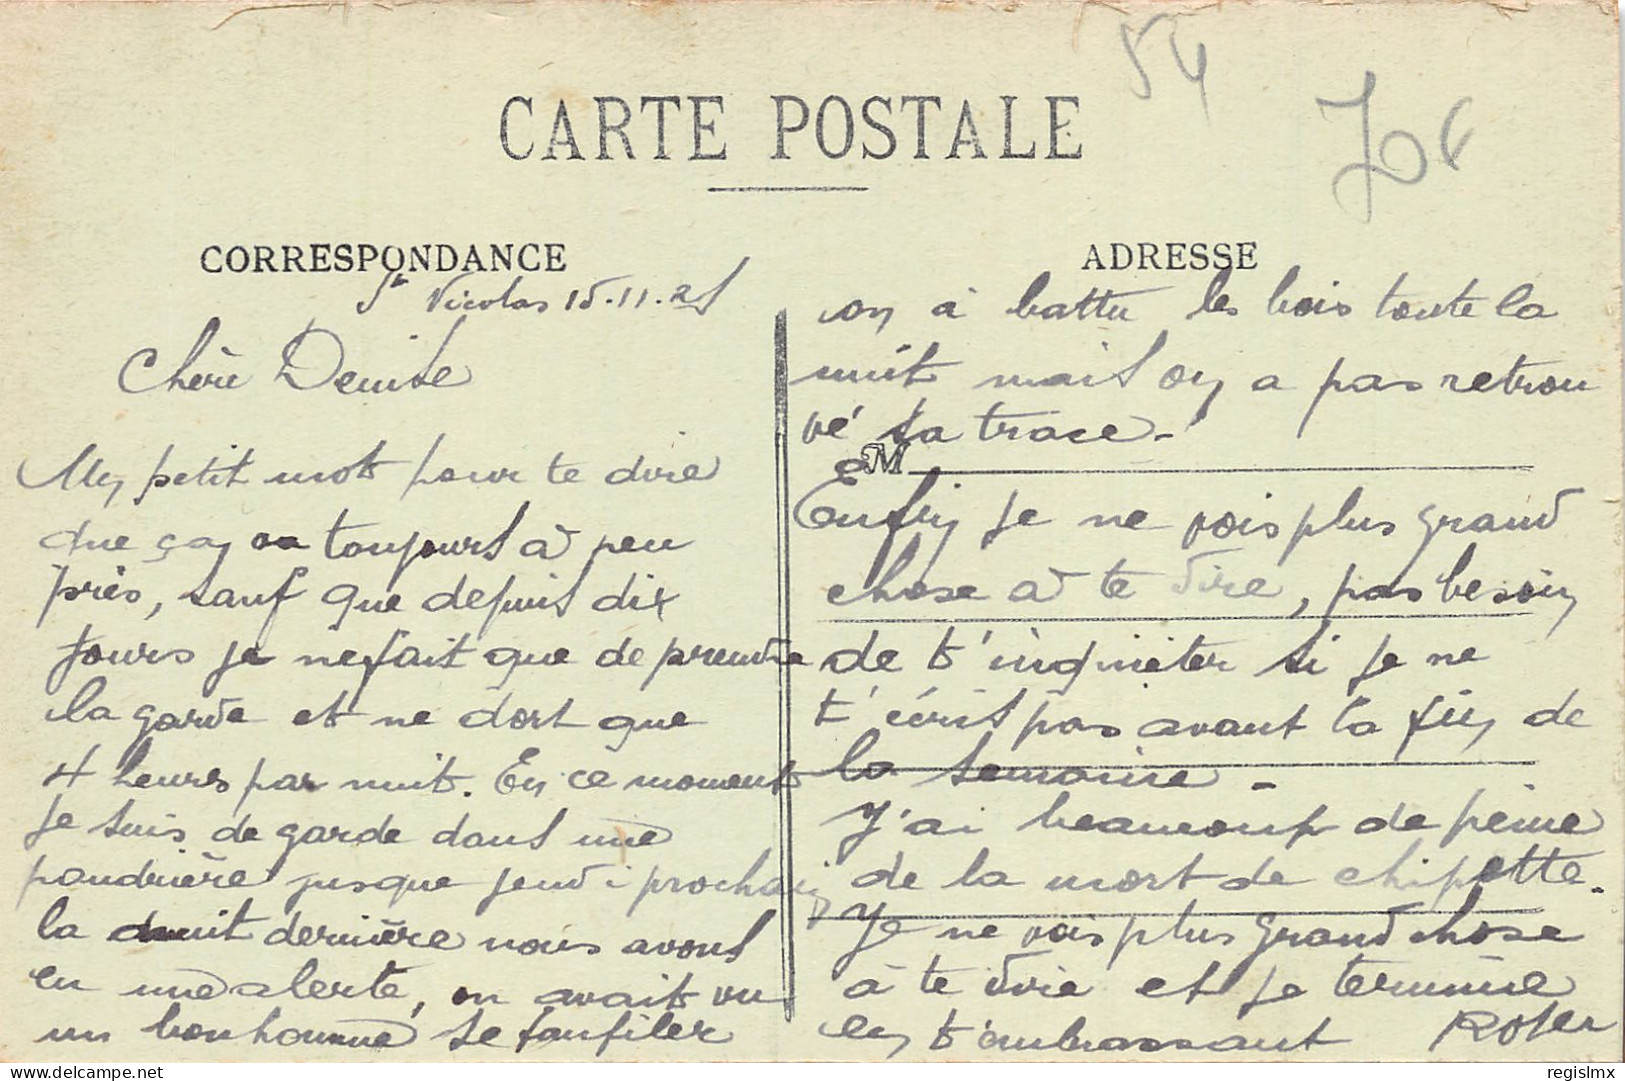 CARTE POSTALE
54
70F
CORRESPONDANCE
ADRESSE
St Nicolas 15.11.25
Chère Denise
Un petit mot pour te dire
que ça va toujours à peu
près, sauf que depuis dix
jours je ne fait que de prendre
la garde et ne dort que
4 heures par nuit. En ce moment
je suis de garde dans une
poudrière jusque jeudi prochain
la nuit dernière nous avons
eu une alerte, on avait vu
un bonhomme se faufiler
on à battu les bois toute la
nuit mais on a pas retrou
vé sa trace -
M
Enfin je ne vois plus grand
chose à te dire, pas besoin
de t'inquiéter si je ne
t'écris pas avant la fin de
la semaine -
J'ai beaucoup de peine
de la mort de chipette.
Je ne vois plus grand chose
à te dire et je termine
en t'embrassant Roger
regislmx